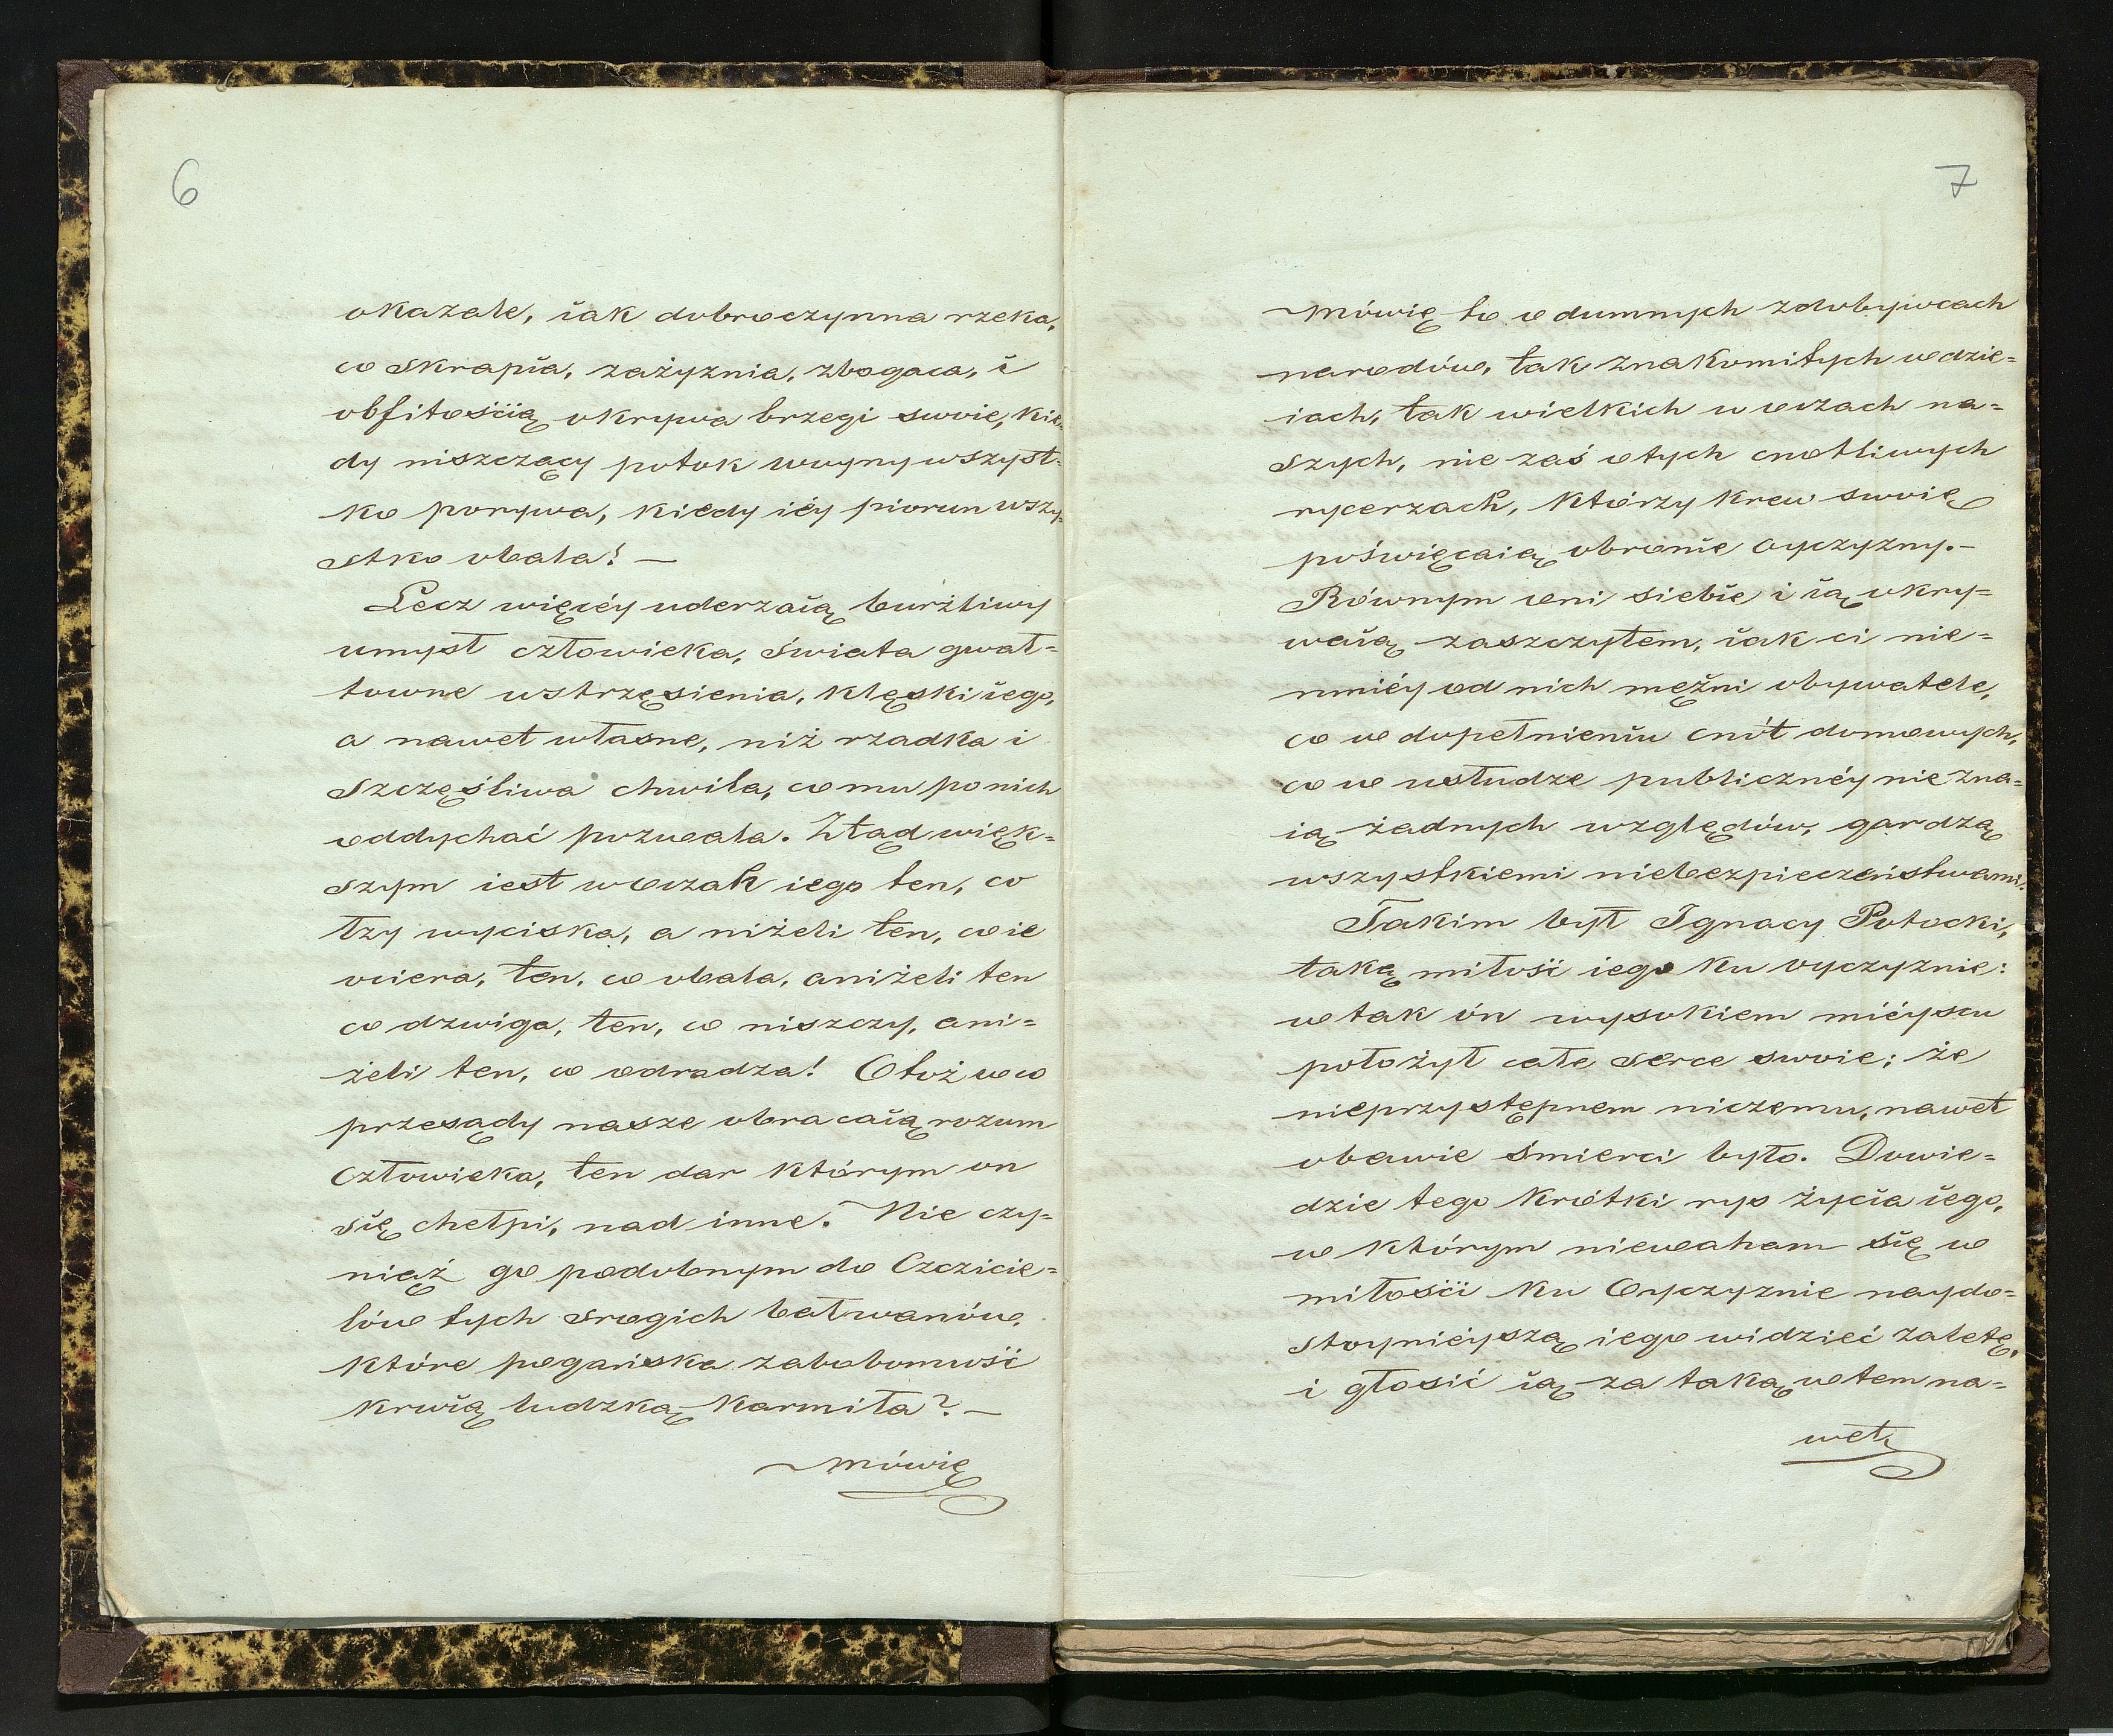 6
okazale, iak dobroczynna rzeka,
co skrapia, zażyznia, zbogaca, i
obfitością okrywa brzegi swoie, kie=
dy niszczący potok woyny wszyst=
ko porywa, kiedy iéy piorun wszy=
stko obala! —
Lecz więcéy uderzaią burżliwy
umysł człowieka, świata gwał=
towne wstrzęsienia, klęski iego,
a nawet własne, niż rzadka i
szczęśliwa chwila, co mu po nich
oddychać pozwala. Ztąd więk=
szym iest w oczach iego ten, co
łzy wyciska, a niżeli ten, co ie
ociera, ten, co obala, aniżeli ten
co dzwiga, ten, co niszczy, ani=
żeli ten, co odradza! Otoż w co
przesądy nasze obracaią rozum
człowieka, ten dar którym on
się chełpi, nad inne. Nie czy=
niąż go podobnym do Czcicie=
lów tych srogich bałwanów,
które pogańska zabobonność
krwią ludzką karmiła? —
mówię
7
mówię to o dumnych zdobywcach
narodów, tak znakomitych w dzie=
iach, tak wielkich w oczach na=
szych, nie zaś o tych cnotliwych
rycerzach, którzy krew swoię
poświęcaią obronie oyczyzny. —
Równym oni siebie i ią okry=
waią zaszczytem, iak ci nie=
mniéy od nich mężni obywatele,
co w dopełnieniu cnót domowych,
co w usłudze publicznéy nie zna=
ią żadnych względów, gardzą
wszystkiemi niebezpieczeństwami.
Takim był Ignacy Potocki,
taką miłość iego ku oyczyznie:
w tak ón wysokiem miéyscu
położył całe serce swoie; że
nieprzystępnem niczemu, nawet
obawie śmierci było. Dowie=
dzie tego krótki rys życia iego,
w którym niewaham się w
miłości ku Oyczyznie naydo=
stoynićyszą iego widzieć zaletę,
i głosić ią za taką w tem na=
wet,